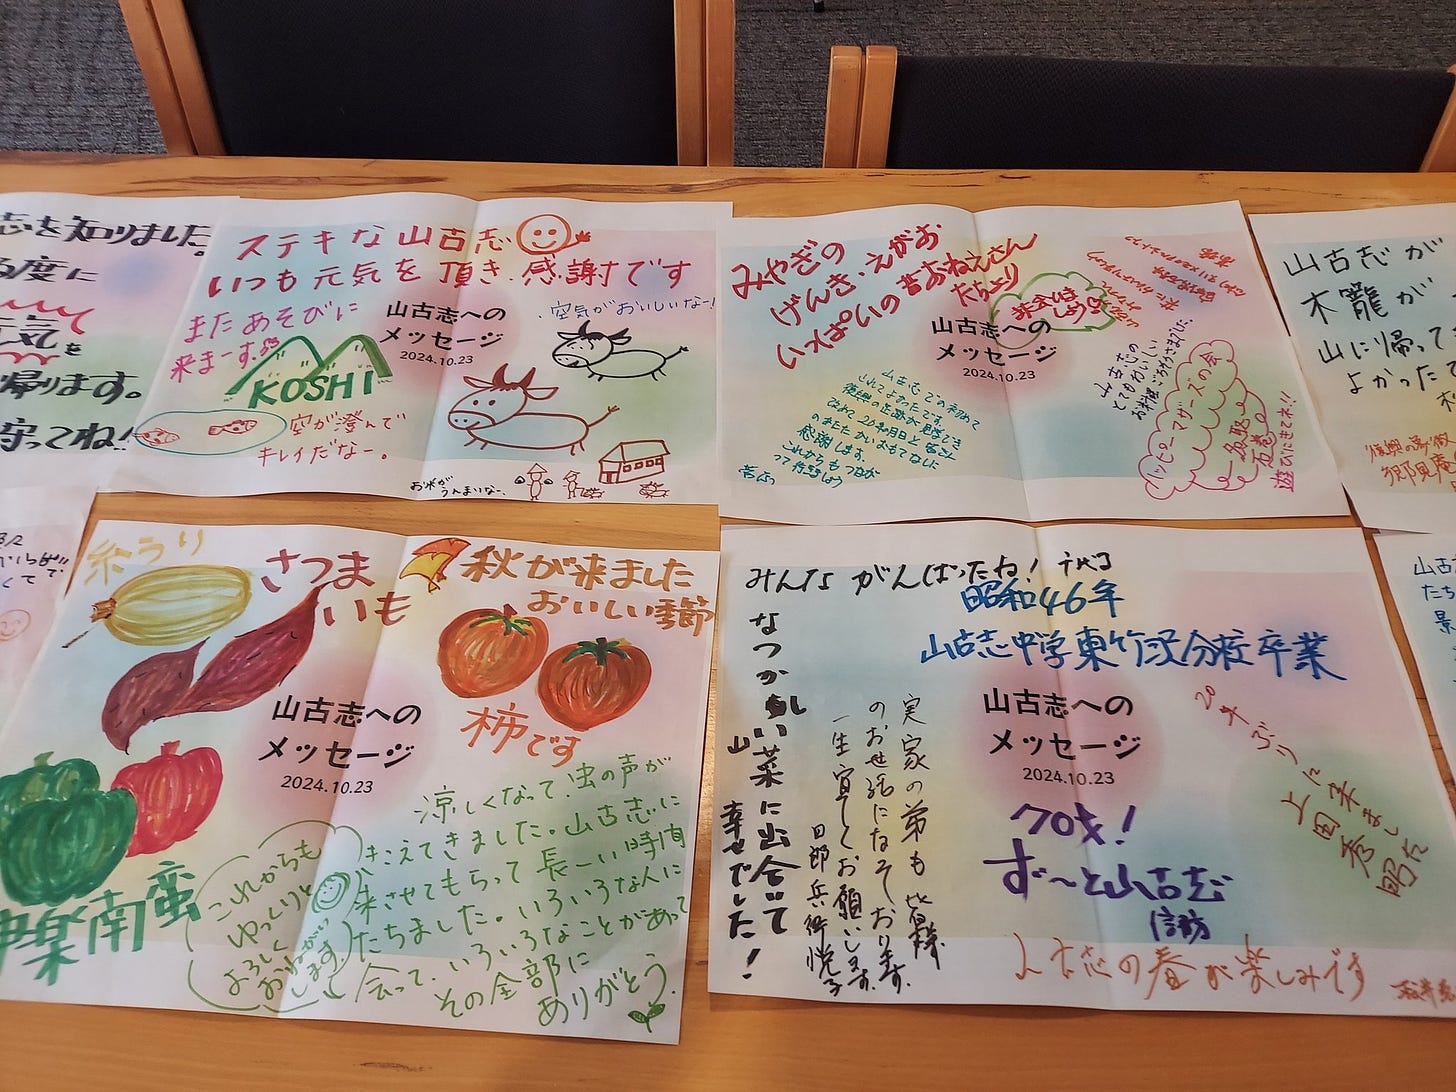 志を知りました。
る度に
元気を
帰ります。
守ってね!!
ステキな山古志
いつも元気を頂き、感謝です
またあそびに
来まーす。
山古志への
メッセージ
2024.10.23
KOSHI
空気がおいしいなー!
空が澄んで
キレイだなー。
お米が
うんまいなー、
みやぎの
げんき・えがお
いっぱいの昔おねえさん
たちより
山古志への
メッセージ
2024.10.23
山古志での
これてよかったです。
感謝します。
これからもつながって
行きましょう
山古志の
とてもおいしい
お料理ごちそうさまでした
ハッピーマザーズの会
名取
石巻
遊びにきてネ!!
山古志が
木籠が
山に帰って
よかった
糸うり
さつま
いも
秋が来ました
おいしい季節
柿です
山古志への
メッセージ
2024.10.23
神楽南蛮
涼しくなって、虫の声が
きこえてきました。山古志に
来させてもらって長ーい時間
たちました。いろいろな人に
会って、いろいろなことがあって
その全部に
ありがとう。
これからも
ゆっくりと
よろしく
おねがい
します。
みんながんばったね!
昭和46年
山古志中学東竹沢分校卒業
なつかしい
山菜に出会えて
幸せでした!
実家の弟も皆様
のお世話になっております。
一生宜しくお願いします。
山古志への
メッセージ
2024.10.23
70才!
ず〜と山古志
20年ぶりに来ました
上田秀昭
山古志の春が楽しみです
山古
たち
景